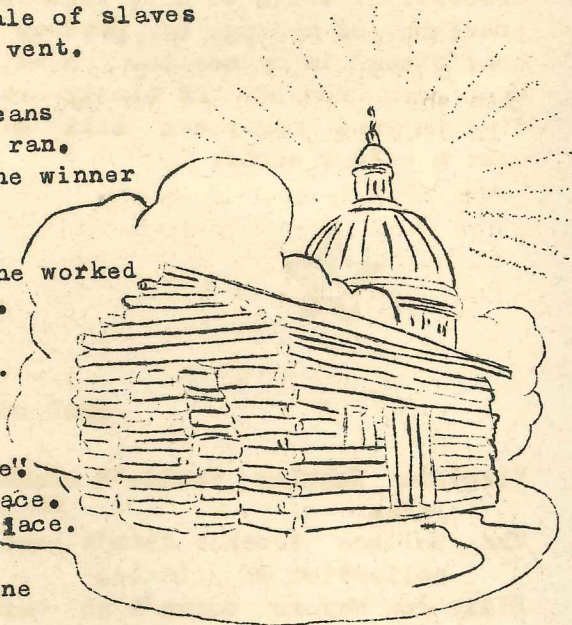 ale of slaves
vent.
eans
ran.
he winner
he worked
.
.
e".
ace.
lace.
ne